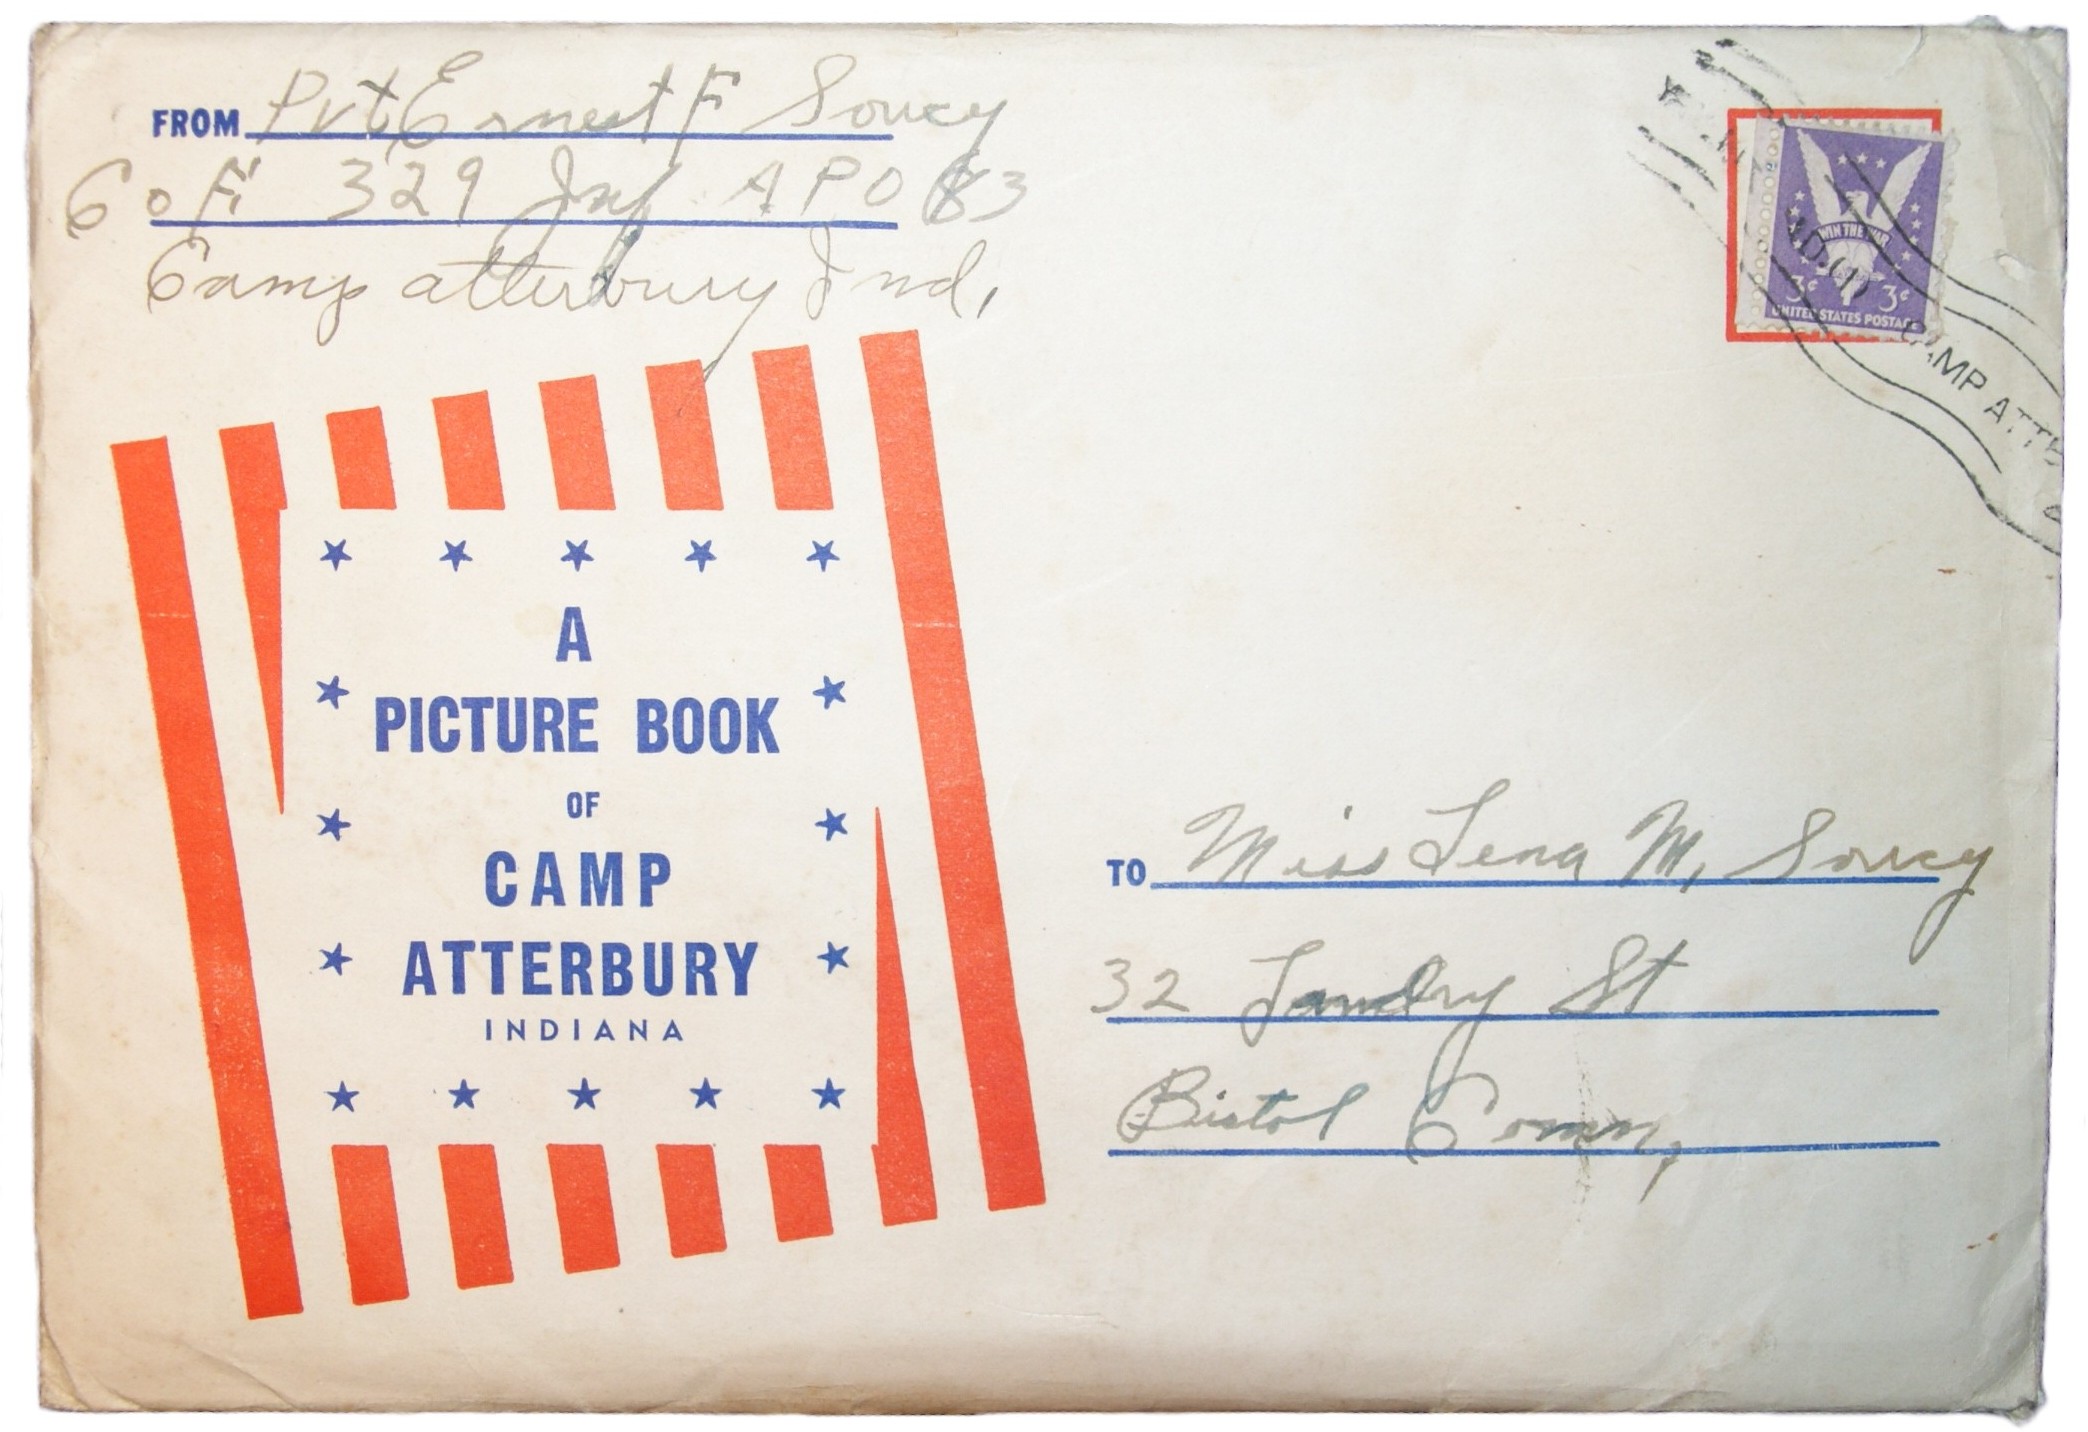 FROM Pvt Ernest F Soucy
Co F 329 Inf APO 83
Camp atterbury Ind,
WIN THE WAR
3¢ 3¢
UNITED STATES POSTAGE
CAMP ATTE
A
PICTURE BOOK
OF
CAMP
ATTERBURY
INDIANA
TO Miss Lena M, Soucy
32 Landry St
Bistol Conn,